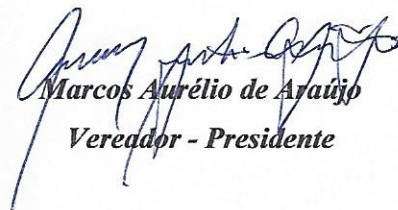 Marcos Aurélio de Araújo
Vereador - Presidente